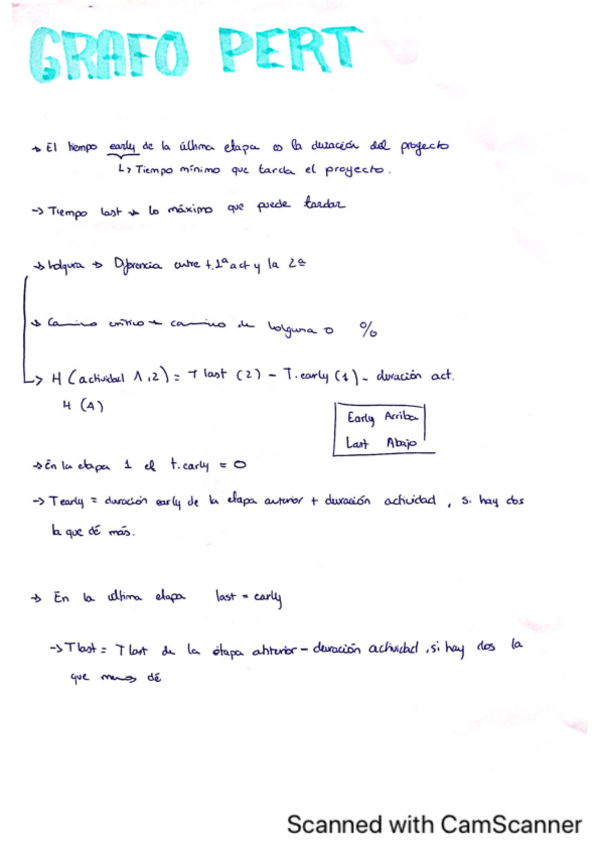 GRAFO PERT
→ El tiempo early de la última etapa es la duración del proyecto
↳ Tiempo mínimo que tarda el proyecto.
→ Tiempo last → lo máximo que puede tardar
→ Holgura → Diferencia entre t.1ª act y la 2ª
→ Camino crítico → camino de holgura 0 %
↳ H (actividad 1,2) = T last (2) - T. early (1) - duración act.
H (A)
Early Arriba
Last Abajo
→ En la etapa 1 el t. early = 0
→ T early = duración early de la etapa anterior + duración actividad, si hay dos
la que dé más.
→ En la última etapa last = early
→ T last = T last de la etapa anterior - duración actividad, si hay dos la
que menos dé
Scanned with CamScanner